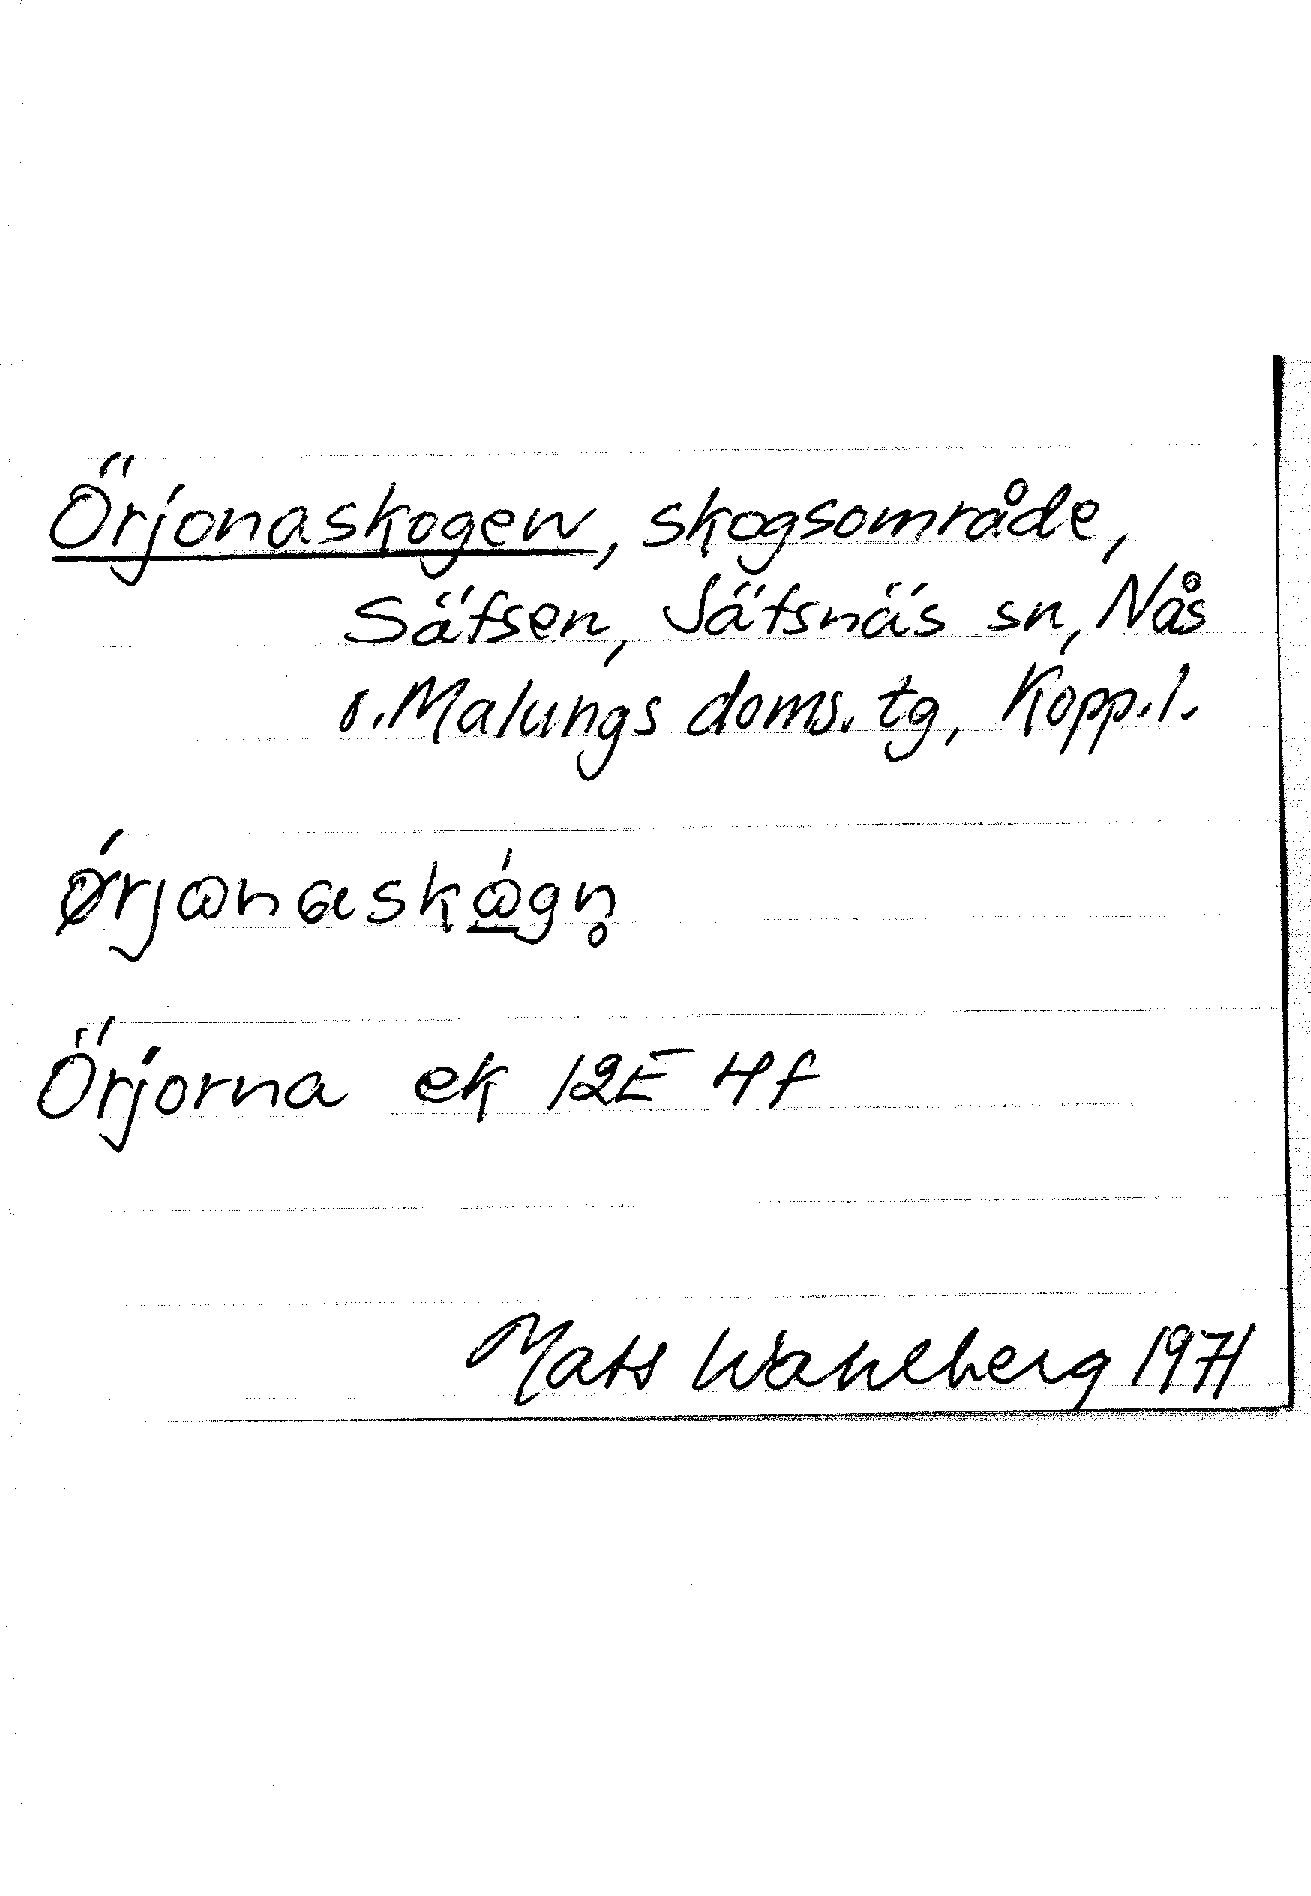 Örjonaskogen, skogsområde,
Säfsen, Säfsnäs sn, Nås
o. Malungs doms. tg, Kopp. l.
ǿrjωnaskώ̲gn̥
Örjorna ek 12E 4f
Mats Wahlberg 1971